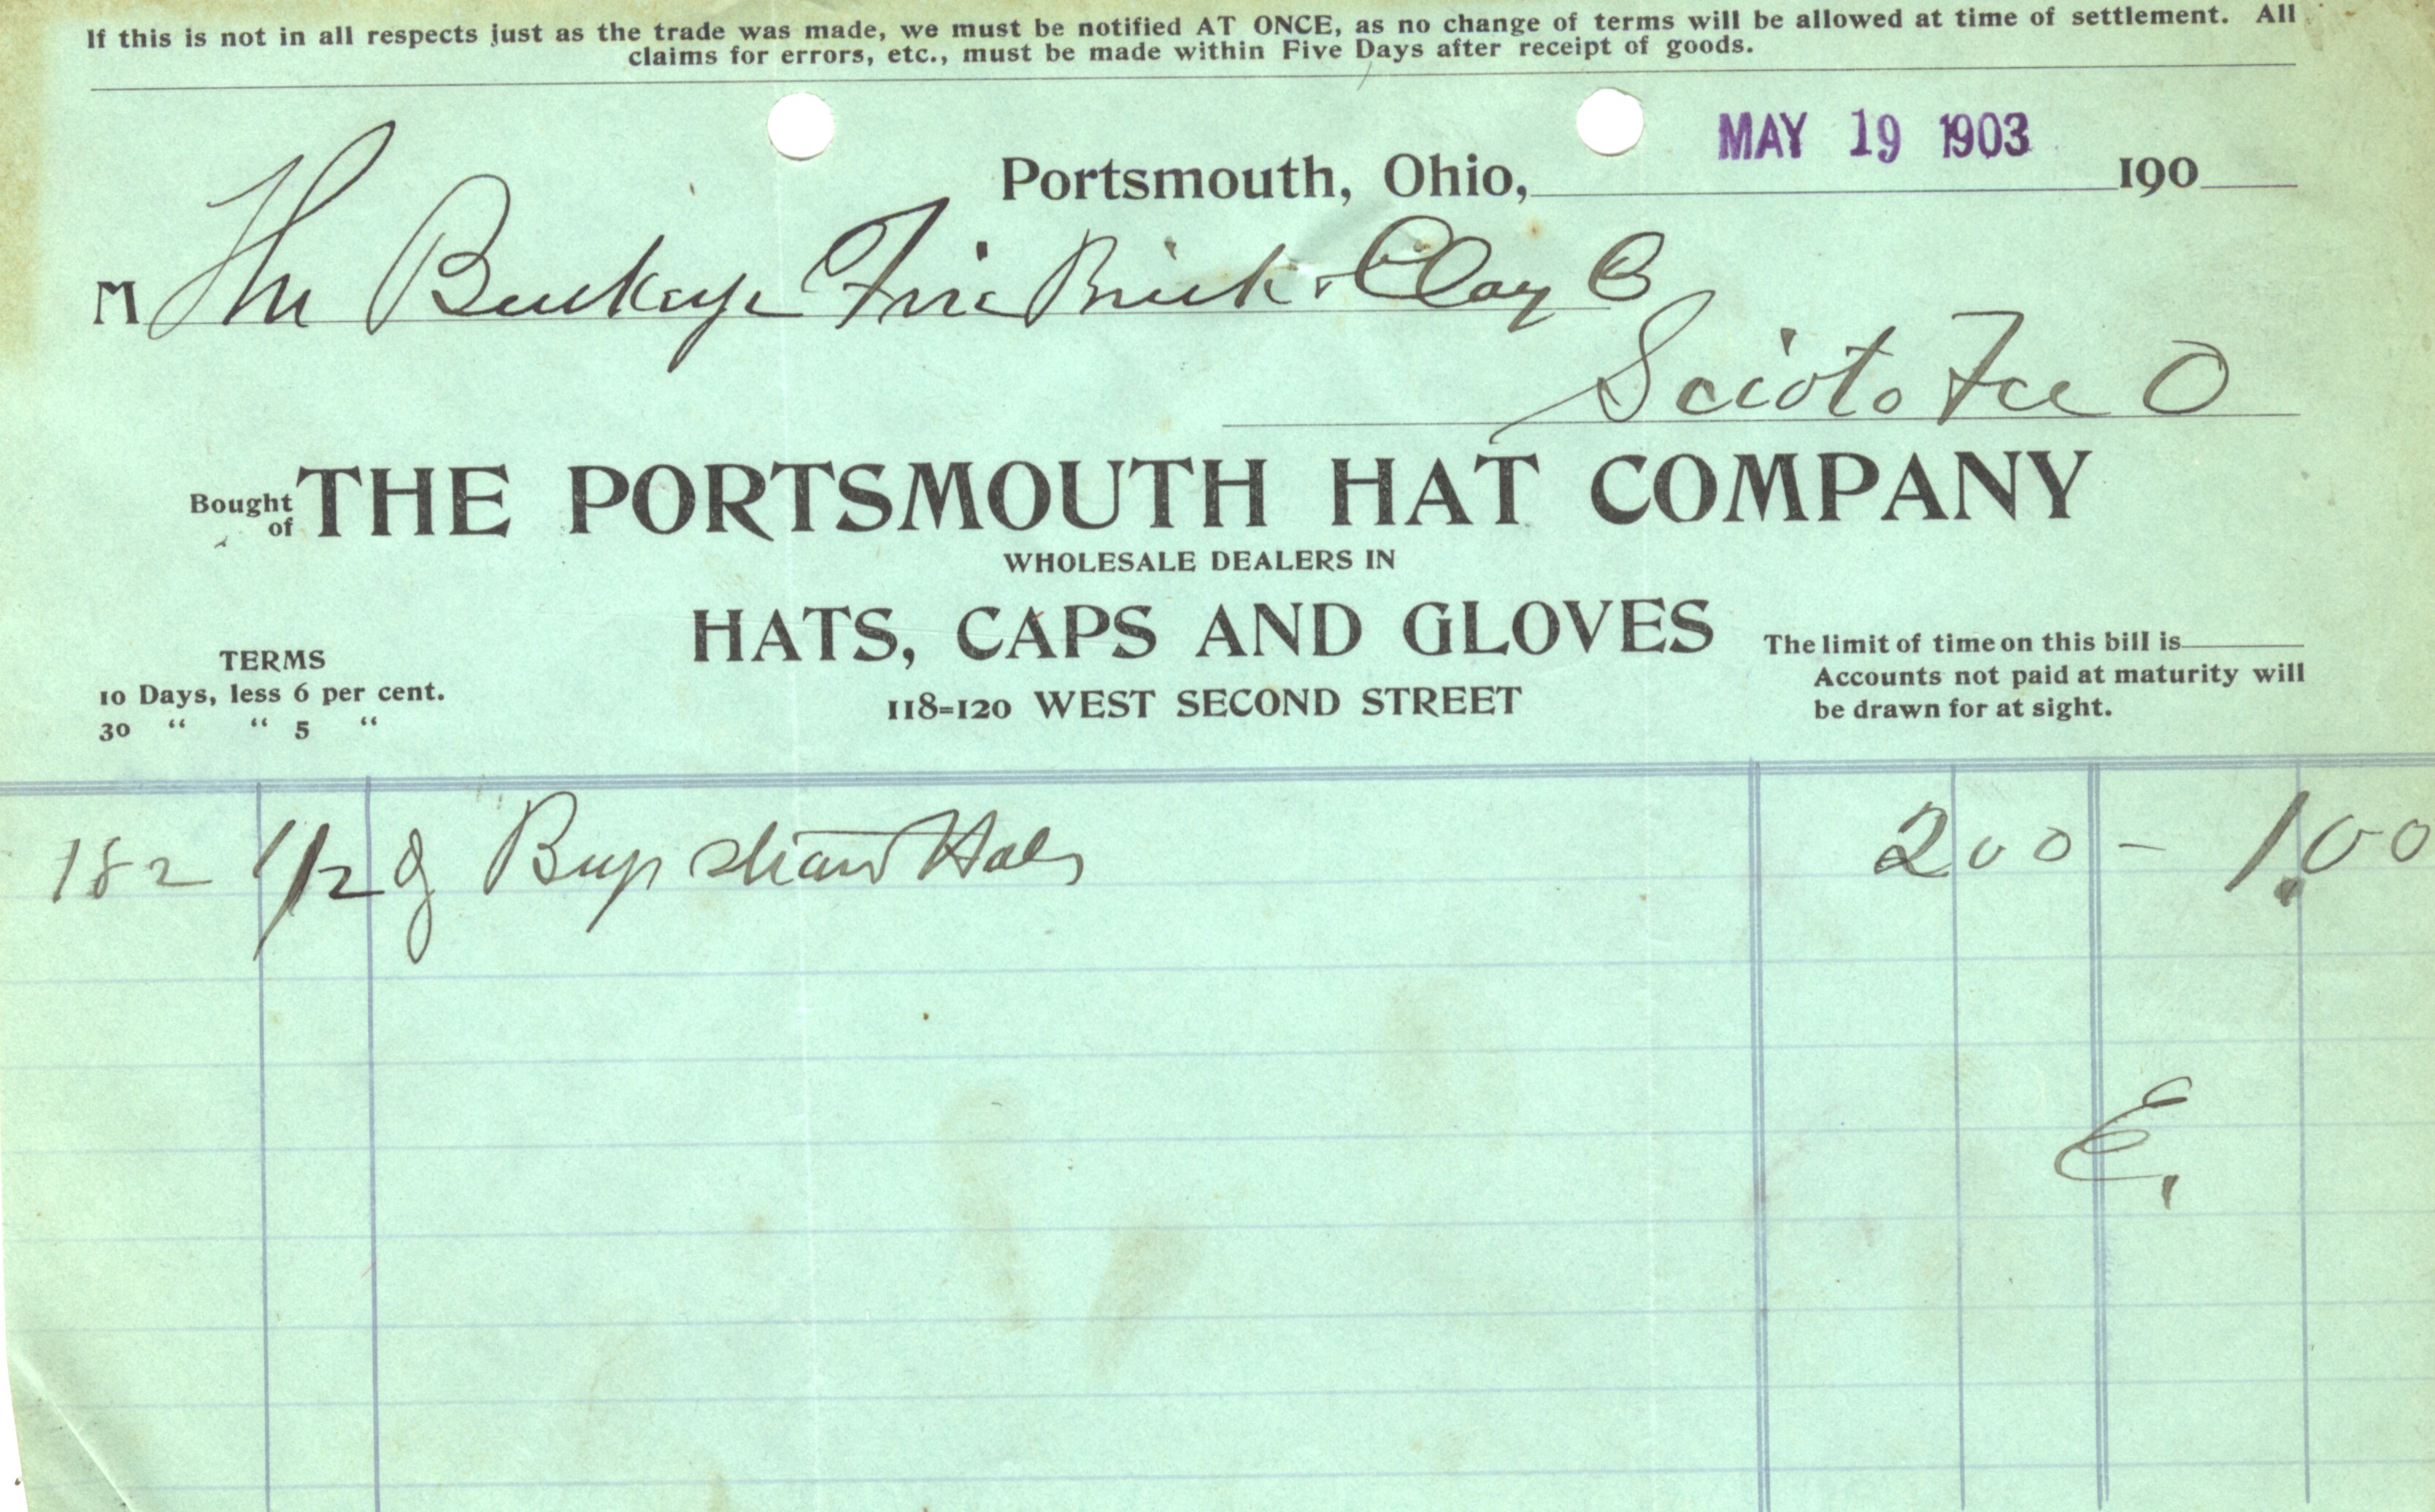 If this is not in all respects just as the trade was made, we must be notified AT ONCE, as no change of terms will be allowed at time of settlement. All
claims for errors, etc., must be made within Five Days after receipt of goods.
MAY 19 1903
Portsmouth, Ohio, 190
M The Buckeye Fire Brick & Clay Co
Scioto Fce O
Bought of THE PORTSMOUTH HAT COMPANY
WHOLESALE DEALERS IN
HATS, CAPS AND GLOVES
118=120 WEST SECOND STREET
TERMS
10 Days, less 6 per cent.
30 " " 5 "
The limit of time on this bill is
Accounts not paid at maturity will
be drawn for at sight.
182 1/2 straw Hats 200 - 1.00
E.